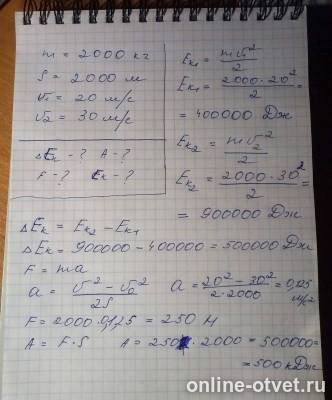 m = 2000 кг
S = 2000 м
v₁ = 20 м/с
v₂ = 30 м/с
ΔEк - ? A - ?
F - ? Eк - ?
Eк₁ = mv₁²/2
Eк₁ = 2000·20²/2 =
= 400000 Дж
Eк₂ = mv₂²/2
Eк₂ = 2000·30²/2
= 900000 Дж
ΔEк = Eк₂ - Eк₁
ΔEк = 900000 - 400000 = 500000 Дж
F = ma
a = v² - v₀²/2S a = 20² - 30²/2·2000 = 0,125 м/с²
F = 2000·0,125 = 250 Н
A = F·S A = 250·2000 = 500000 =
= 500 кДж
online-otvet.ru